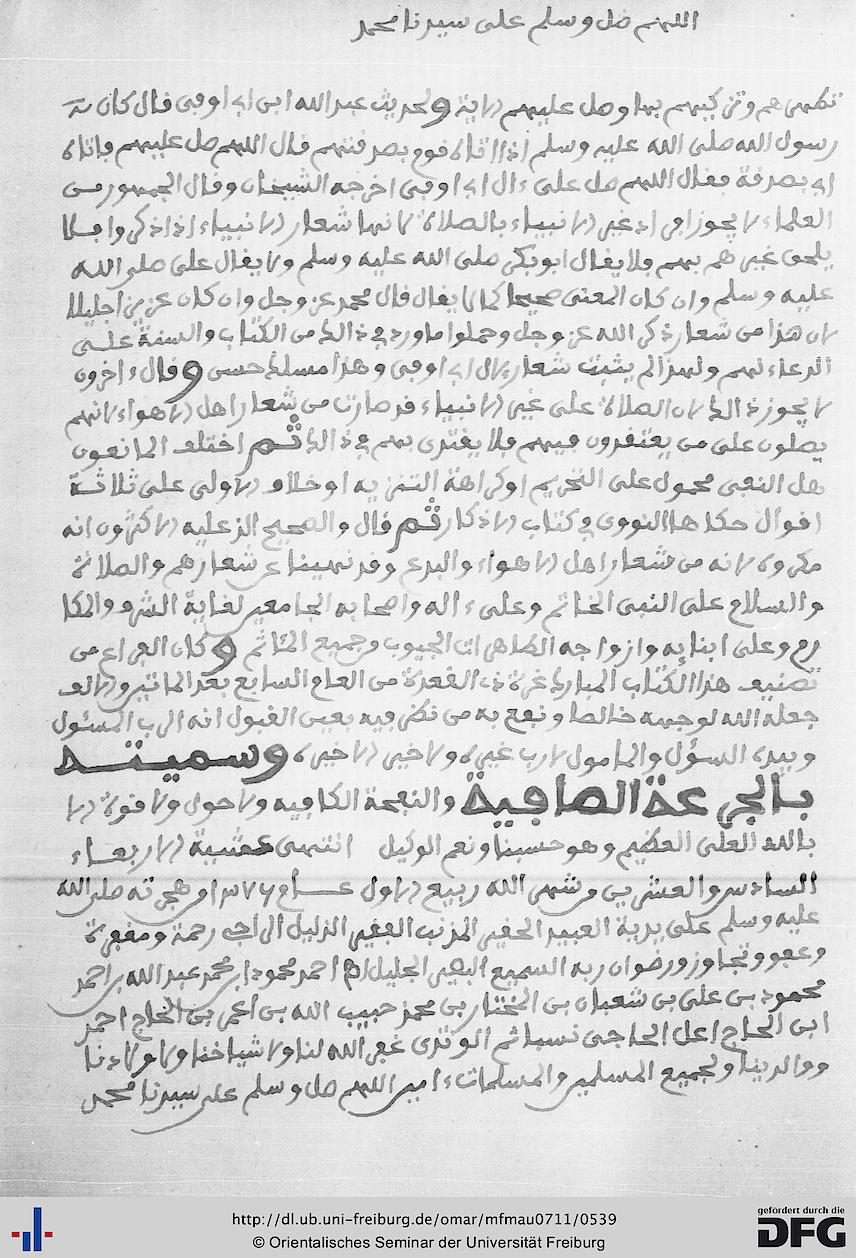 اللهم صل وسلم على سيدنا محمد
تطهرهم وتزكيهم بها وصل عليهم الاية ولحديث عبد الله ابن ابي اوفى قال كان
رسول الله صلى الله عليه وسلم اذا اتاه قوم بصدقتهم قال اللهم صل عليهم فاتاه
ابي بصدقة فقال اللهم صل على ءال ابي اوفى اخرجه الشيخان وقال الجمهور من
العلماء لا يجوز افراد غير الانبياء بالصلاة لانها شعار الانبياء اذا ذكروا فلا
يلحق غيرهم بهم فلا يقال ابو بكر صلى الله عليه وسلم ولا يقال علي صلى الله
عليه وسلم وان كان المعنى صحيحا كما لا يقال قال محمد عز وجل وان كان عزيزا جليلا
لان هذا من شعار ذكر الله عز وجل وحملوا ما ورد في ذالك من الكتاب والسنة على
الدعاء لهم ولهذا لم يثبت شعار لال ابي اوفى وهذا مسلك حسن وقال ءاخرون
لا يجوز ذالك لان الصلاة على غير الانبياء قد صارت من شعار اهل الاهواء لانهم
يصلون على من يعتقدون فيهم فلا يقتدى بهم في ذالك ثم اختلف المانعون
هل النهى محمول على التحريم او كراهة التنزيه او خلاف الاولى على ثلاثة
اقوال حكاها النووي في كتاب الاذكار ثم قال والصحيح الذ عليه الاكثرون انه
مكروه لانه من شعار اهل الاهواء والبدع وقد نهينا عن شعارهم والصلاة
والسلام على النبى الخاتم وعلى ءاله واصحابه الجامعين لغاية الشرف والمكا
رم وعلى ابنايه وازواجه الطاهرات الجيوب وجميع المئاثم وكان الفراغ من
تصنيف هذا الكتاب المبارك غرة ذى القعدة من العام السابع بعد الماتين والالف
جعله الله لوجهه خالصا ونفع به من نظر فيه بعين القبول انه الرب المسئول
وبيده السؤل والمامول لا رب غيره ولا خير الا خيره وسميته
بالجرعة الصافية والنفحة الكافيه ولا حول ولا قوة الا
بالله العلى العظيم وهو حسبنا ونعم الوكيل انتهى عشية الاربعاء
السادس والعشرين من شهر الله ربيع الاول عام ١٣٧٦ من هجرته صلى الله
عليه وسلم على يدية العبيد الحقير المذنب الفقير الذليل الراجى رحمة ومغفرة
وعفو وتجاوز ورضوان ربه السميع البصير الجليل احمد محمود بن محمد عبد الله بن احمد
محمود بن على بن شعبان بن المختار بن محمذ حبيب الله بن اعمر بن الحاج احمد
ابن الحاج اعل الحاجى نسبا ثم الوقدى غفر الله لنا ولاشياخنا ولاولادنا
ووالدينا ولجميع المسلمين والمسلمات ءامين اللهم صل وسلم على سيدنا محمد
http://dl.ub.uni-freiburg.de/omar/mfmau0711/0539
© Orientalisches Seminar der Universität Freiburg
gefördert durch die
DFG